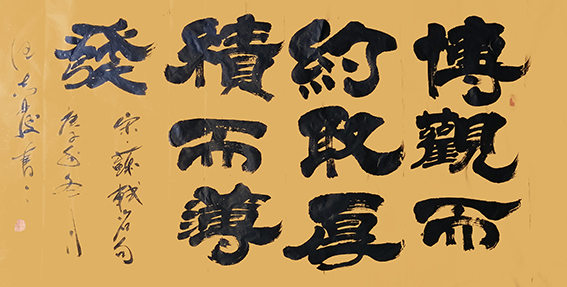 博觀而
約取厚
積而薄
發
宋蘇軾名句
庚子年冬月
書